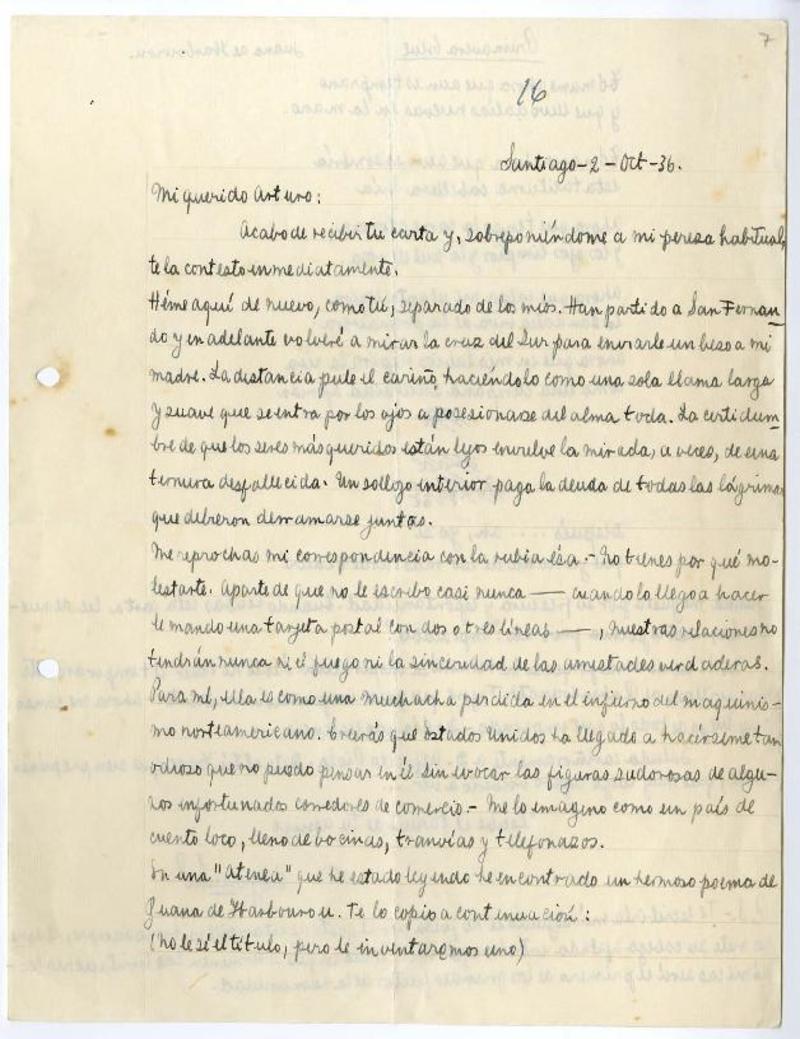 7
16
Santiago-2-Oct-36.
Mi querido Arturo:
Acabo de recibir tu carta y, sobreponiéndome a mi pereza habitual,
te la contesto inmediatamente.
Héme aquí de nuevo, como tú, separado de los míos. Han partido a San Fernan-
do y en adelante volveré a mirar la cruz del Sur para enviarle un beso a mi
madre. La distancia pule el cariño, haciéndolo como una sola llama larga
y suave que se entra por los ojos a posesionarse del alma toda. La certidum-
bre de que los seres más queridos están lejos envuelve la mirada, a veces, de una
ternura desfallecida. Un sollozo interior paga la deuda de todas las lágrimas
que debieron derramarse juntas.
Me reprochas mi correspondencia con la rubia ésa.- No tienes por qué mo-
lestarte. Aparte de que no le escribo casi nunca — cuando lo llego a hacer
le mando una tarjeta postal con dos o tres líneas —, nuestras relaciones no
tendrán nunca ni el fuego ni la sinceridad de las amistades verdaderas.
Para mí, ella es como una muchacha perdida en el infierno del maquinis-
mo norteamericano. Creerás que Estados Unidos ha llegado a hacérseme tan
odioso que no puedo pensar en él sin evocar las figuras sudorosas de algu-
nos infortunados corredores de comercio.- Me lo imagino como un país de
cuento loco, lleno de bocinas, tranvías y telefonazos.
En una "Atenea" que he estado leyendo he encontrado un hermoso poema de
Juana de Ibarbourou. Te lo copio a continuación:
(No le sé el título, pero le inventaremos uno)